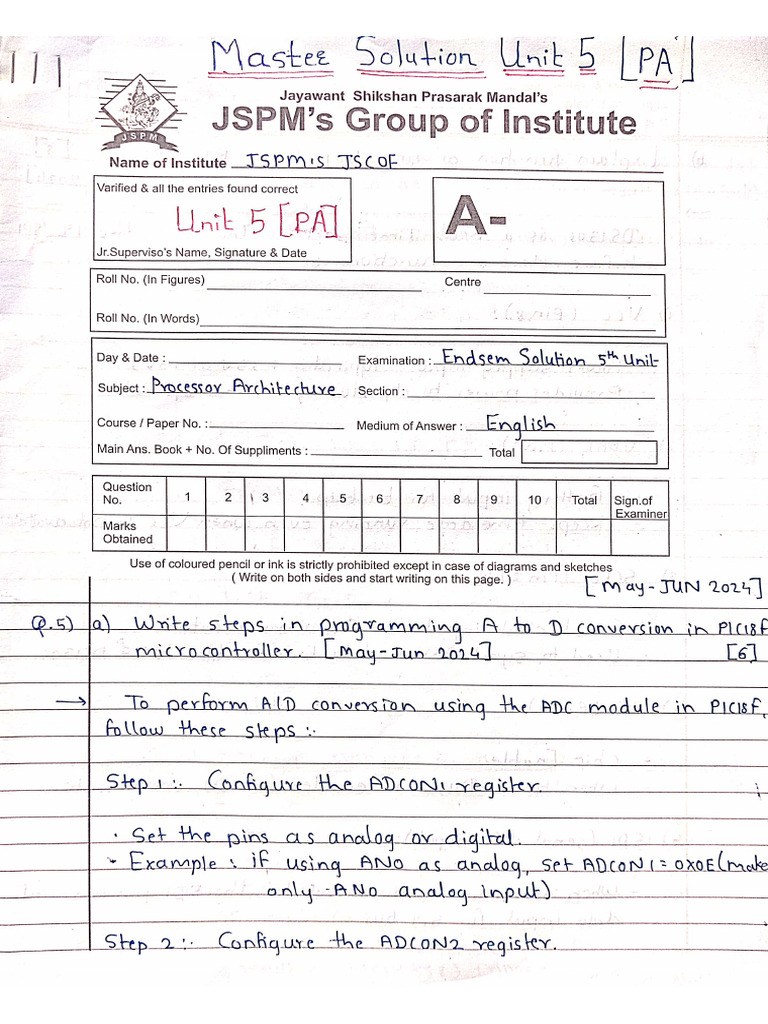 Mastee Solution Unit 5 [PA]
Jayawant Shikshan Prasarak Mandal's
JSPM's Group of Institute
JSPM
Name of Institute JSPM's JSCOE
Varified & all the entries found correct
Unit 5 [PA]
Jr.Superviso's Name, Signature & Date
A-
Roll No. (In Figures) Centre
Roll No. (In Words)
Day & Date : Examination : Endsem Solution 5th Unit
Subject : Processor Architecture Section :
Course / Paper No. : Medium of Answer : English
Main Ans. Book + No. Of Suppliments : Total
Question No. 1 2 3 4 5 6 7 8 9 10 Total Sign.of Examiner
Marks Obtained
Use of coloured pencil or ink is strictly prohibited except in case of diagrams and sketches
( Write on both sides and start writing on this page. )
[May-JUN 2024]
Q.5) a) Write steps in programming A to D conversion in PIC18F
microcontroller. [May-Jun 2024] [6]
→ To perform A/D conversion using the ADC module in PIC18F,
follow these steps :-
Step 1:- Configure the ADCON1 register.
· Set the pins as analog or digital.
· Example : if using AN0 as analog, set ADCON1 = 0X0E (make
only AN0 analog input)
Step 2:- Configure the ADCON2 register.